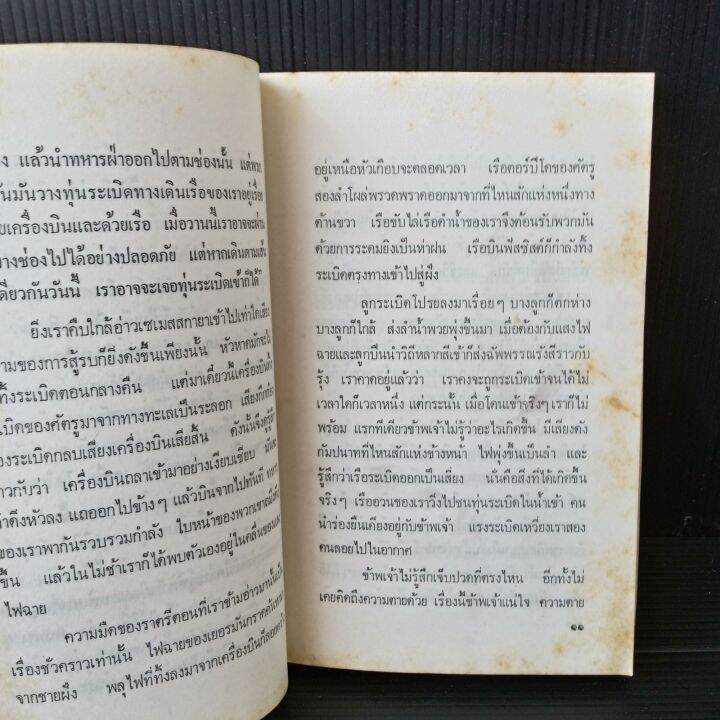 แล้วนำทหารฝ่าออกไปตามช่องนั้น แต่พวก
ันมันวางทุ่นระเบิดทางเดินเรือของเราอยู่เรื่อ
ยเครื่องบินและด้วยเรือ เมื่อวานนี้เราอาจจะผ่าน
างช่องไปได้อย่างปลอดภัย แต่หากเดินตามเส้น
ดียวกันวันนี้ เราอาจจะเจอทุ่นระเบิดเข้าก็ได้
ยิ่งเราคืบใกล้อ่าวเซเมสสกายาเข้าไปเท่าใดเสียง
ามของการสู้รบก็ยิ่งดังขึ้นเพียงนั้น
ทิ้งระเบิดตอนกลางคืน แต่มาเดี๋ยวนี้เครื่องบินทิ้ง
เบิดของศัตรูมาจากทางทะเลเป็นระลอก
องระเบิดกลบเสียงเครื่องบินเสียสิ้น ดังนั้นจึงดูรู้สึก
าวกับว่า เครื่องบินถลาเข้ามาอย่างเงียบเชียบ
าดิ่งหัวลง แถออกไปข้างๆ แล้วบินจากไปทันที
ของเราพากันรวบรวมกำลัง ใบหน้าของพวกเขาเคร่ง
ขึ้น แล้วในไม่ช้าเราก็ได้พบตัวเองอยู่ในคลื่นของแสง
ไฟฉาย
ความมืดของราตรีตอนที่เราข้ามอ่าวมานั้นเป็น
เรื่องชั่วคราวเท่านั้น ไฟฉายของเยอรมันกราด
จากชายฝั่ง พลุไฟที่ทิ้งลงมาจากเครื่องบินก็ลอย
อยู่เหนือหัวเกือบจะตลอดเวลา เรือตอร์ปิโดของศัตรู
สองลำโผล่พรวดพราดออกมาจากที่ไหนสักแห่งหนึ่งทาง
ด้านขวา เรือขับไล่เรือดำน้ำของเราจึงต้อนรับพวกมัน
ด้วยการระดมยิงเป็นห่าฝน เรือบินฟัสซิสต์ก็กำลังทิ้ง
ระเบิดตรงทางเข้าไปสู่ฝั่ง
ลูกระเบิดโปรยลงมาเรื่อยๆ บางลูกก็ตกห่าง
บางลูกก็ใกล้ ส่งลำน้ำพวยพุ่งขึ้นมา เมื่อต้องกับแสงไฟ
ฉายและลูกปืนนำวิถีหลากสีเข้าก็ส่งฉัพพรรณรังสีราวกับ
รุ้ง เราคาดอยู่แล้วว่า เราคงจะถูกระเบิดเข้าจนได้ไม่
เวลาใดก็เวลาหนึ่ง แต่กระนั้น เมื่อโดนเข้าจริงๆ เราก็ไม่
พร้อม แรกทีเดียวข้าพเจ้าไม่รู้ว่าอะไรเกิดขึ้น มีเสียงดัง
กัมปนาทที่ไหนสักแห่งข้างหน้า ไฟพุ่งขึ้นเป็นลำ และ
รู้สึกว่าเรือระเบิดออกเป็นเสี่ยง นั่นคือสิ่งที่ได้เกิดขึ้น
จริงๆ เรืออวนของเราวิ่งไปชนทุ่นระเบิดในน้ำเข้า คน
นำร่องยืนเคียงอยู่กับข้าพเจ้า แรงระเบิดเหวี่ยงเราสอง
คนลอยไปในอากาศ
ข้าพเจ้าไม่รู้สึกเจ็บปวดที่ตรงไหน อีกทั้งไม่
เคยคิดถึงความตายด้วย เรื่องนี้ข้าพเจ้าแน่ใจ ความตาย
๑๑